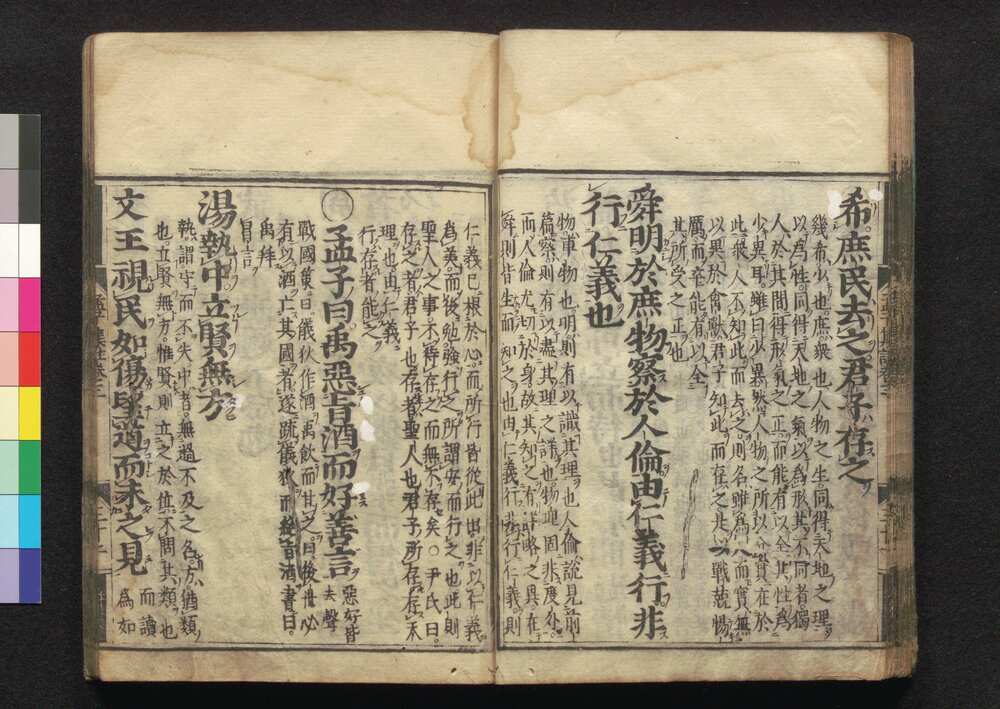 希庶民去之君子存之
幾希少也庶衆也人物之生同得天地之理
以爲性同得天地之氣以爲形其不同者獨
人於其間得形氣之正而能有以全其性爲
少異耳雖曰少異然人物之所以分實在於
此衆人不知此而去之則名雖爲人而實無
以異於禽獸君子知此而存之是以戰兢惕
厲而卒能有以全
其所受之正也
舜明於庶物察於人倫由仁義行非
行仁義也
物事物也明則有以識其理也人倫說見前
篇察則有以盡其理之詳也物理固非度外
而人倫尤切於身故其知之有詳略之異在
舜則皆生而知之也由仁義行非行仁義則
仁義已根於心而所行皆從此出非以仁義
爲美而後勉強行之所謂安而行之也此則
聖人之事不待存之而無不存矣○尹氏曰
存之者君子也存者聖人也君子所存存天
理也由仁義
行存者能之
○孟子曰禹惡旨酒而好善言惡好皆去聲
戰國策曰儀狄作酒禹飲而甘之曰後世必
有以酒亡其國者遂疏儀狄而絶旨酒書曰
禹拜
昌言
湯執中立賢無方
執謂守而不失中者無過不及之名方猶類
也立賢無方惟賢則立之於位不問其類也
文王視民如傷望道而未之見而讀爲如